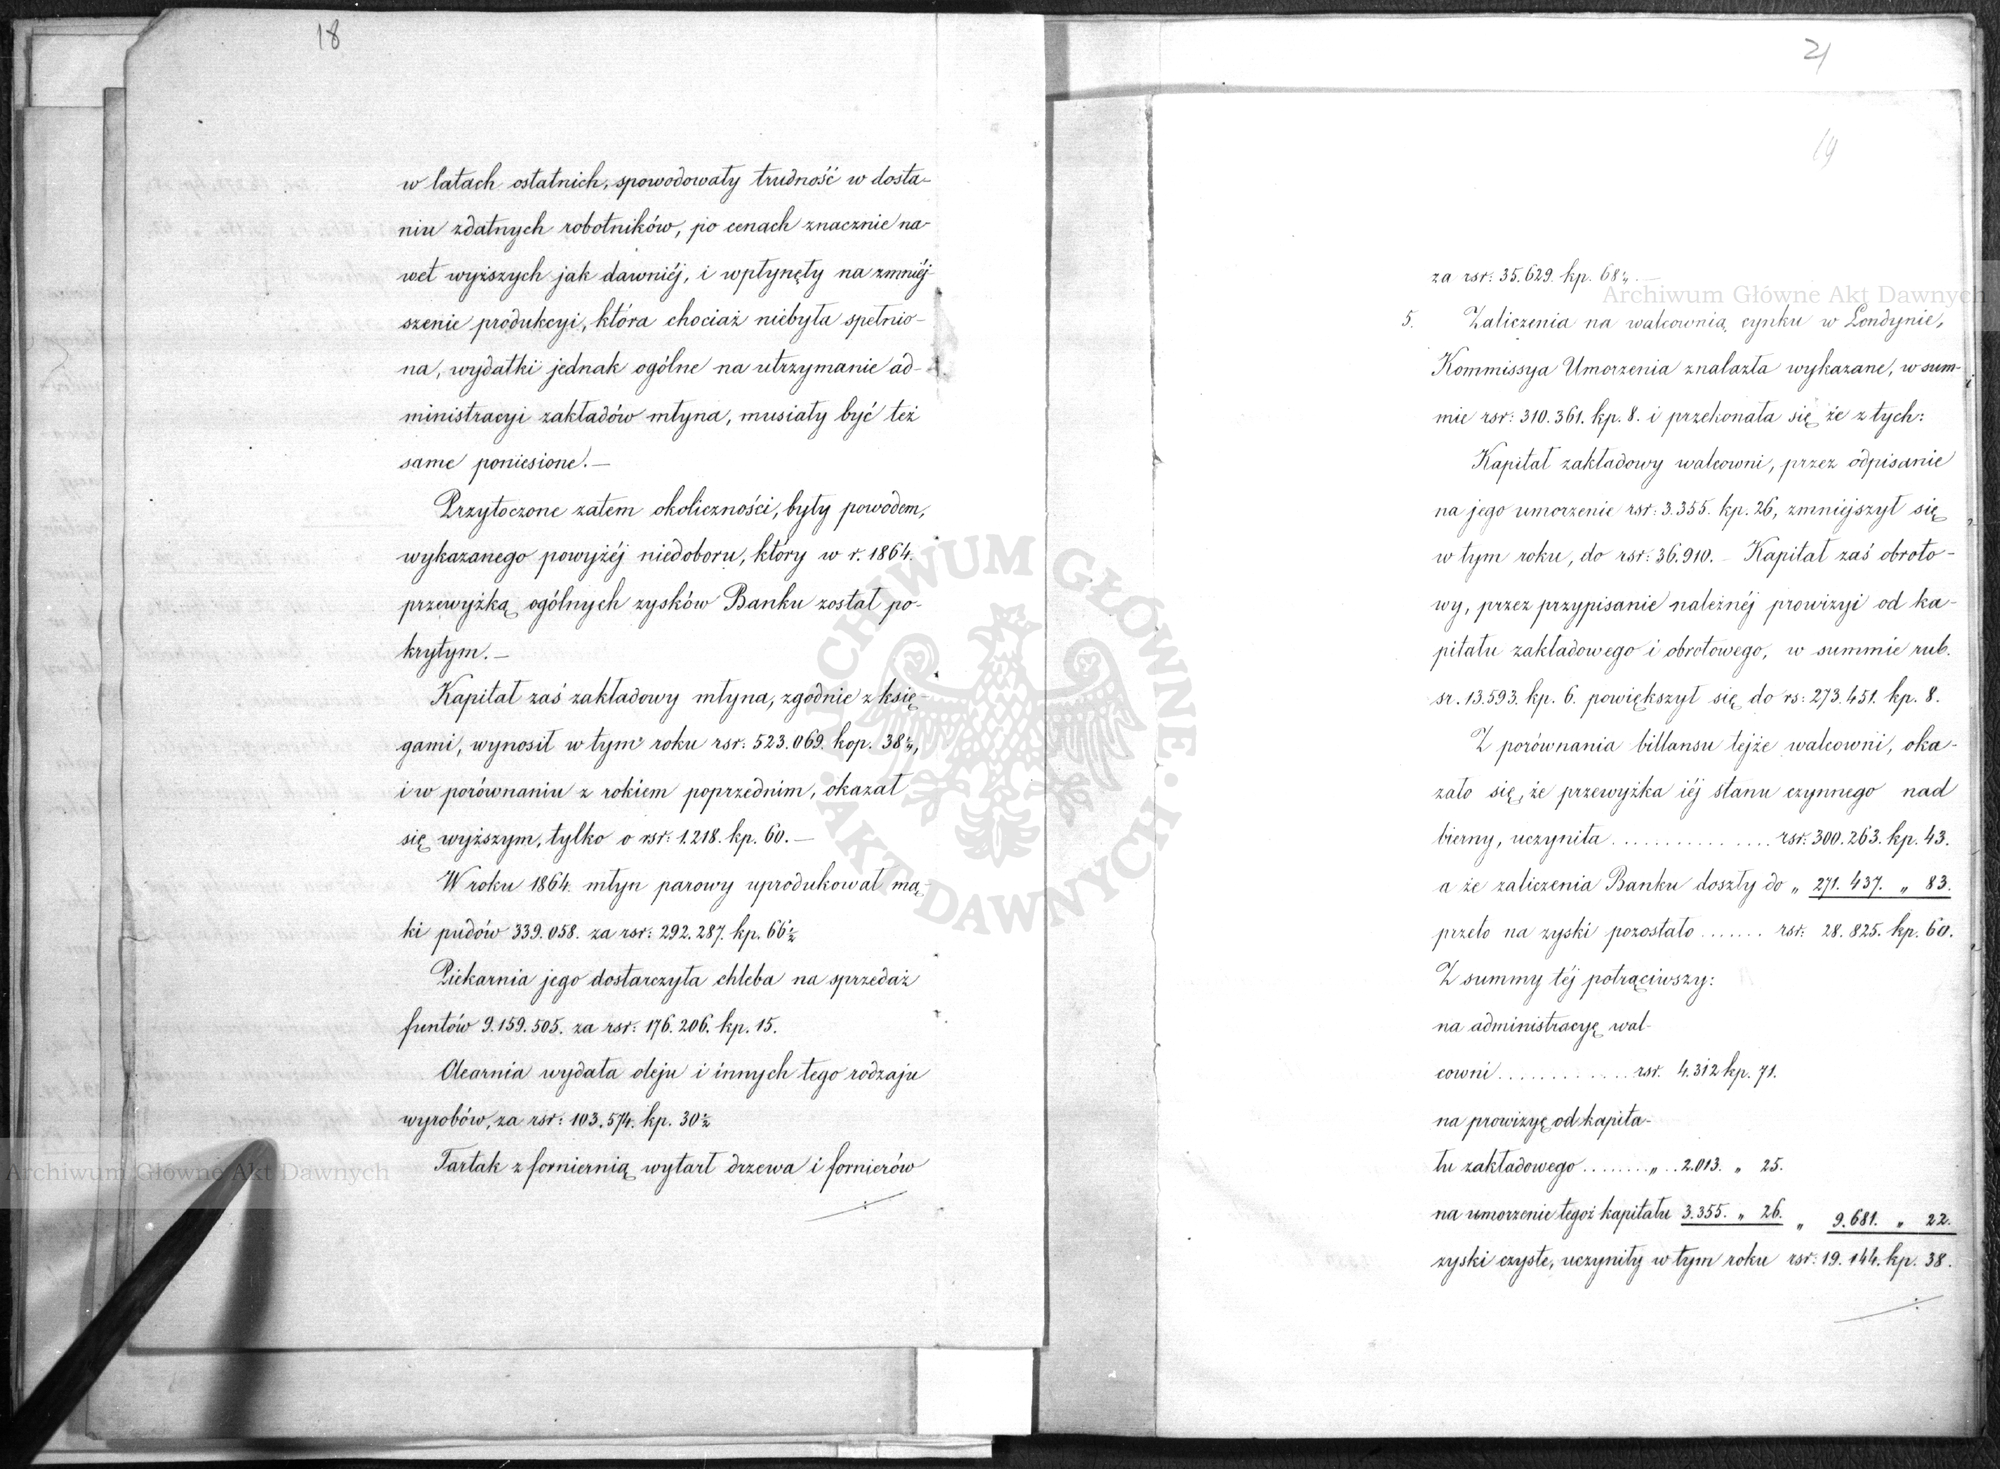 18
w latach ostatnich, spowodowały trudność w dosta-
niu zdatnych robotników, po cenach znacznie na-
wet wyższych jak dawniéj, i wpłynęły na zmniéj
szenie produkcyi, która chociaż niebyła spełnio-
na, wydatki jednak ogólne na utrzymanie ad-
ministracyi zakładów młyna, musiały być też
same poniesione. —
Przytoczone zatem okoliczności, były powodem,
wykazanego powyżéj niedoboru, który w r. 1864.
przewyżką ogólnych zysków Banku został po-
krytym. —
Kapitał zaś zakładowy młyna, zgodnie z księ-
gami, wynosił w tym roku rsr: 523.069. kop. 38½,
i w porównaniu z rokiem poprzednim, okazał
się wyższym, tylko o rsr: 1.218. kp. 60. —
W roku 1864. młyn parowy uprodukował mą-
ki pudów 339.058. za rsr: 292.287. kp. 66½
Piekarnia jego dostarczyła chleba na sprzedaż
funtów 9.159.505. za rsr: 176.206. kp. 15.
Olearnia wydała oleju i innych tego rodzaju
wyrobów, za rsr: 103.574. kp. 30½
Tartak z forniernią wytarł drzewa i fornierów
21
19
za rsr: 35.629. kp. 68½. —
5. Zaliczenia na walcownią cynku w Londynie,
Kommissya Umorzenia znalazła wykazane, w sum-
mie rsr: 310.361. kp. 8. i przekonała się że z tych:
Kapitał zakładowy walcowni, przez odpisanie
na jego umorzenie rsr: 3.355. kp. 26, zmniejszył się
w tym roku, do rsr: 36.910. — Kapitał zaś obroto-
wy, przez przypisanie należnéj prowizyi od ka-
pitału zakładowego i obrotowego, w summie rub.
sr. 13.593. kp. 6. powiększył się do rs: 273.451. kp. 8.
Z porównania billansu tejże walcowni, oka-
zało się, że przewyżka iéj stanu czynnego nad
bierny, uczyniła . . . . . . . . . . . . . . . . rsr: 300.263. kp. 43.
a że zaliczenia Banku doszły do „ 271.437. „ 83.
przeto na zyski pozostało . . . . . . . rsr: 28.825. kp. 60.
Z summy téj potrąciwszy:
na administracyę wal-
cowni . . . . . . . . . . . . rsr. 4.312 kp. 71.
na prowizyę od kapita-
łu zakładowego . . . . . . . „ . . 2.013. „ 25.
na umorzenie tegoż kapitału 3.355. „ 26. „ 9.681. „ 22.
zyski czyste, uczyniły w tym roku rsr: 19.144. kp. 38.
Archiwum Główne Akt Dawnych
Archiwum Główne Akt Dawnych
ARCHIWUM GŁÓWNE · AKT DAWNYCH ·